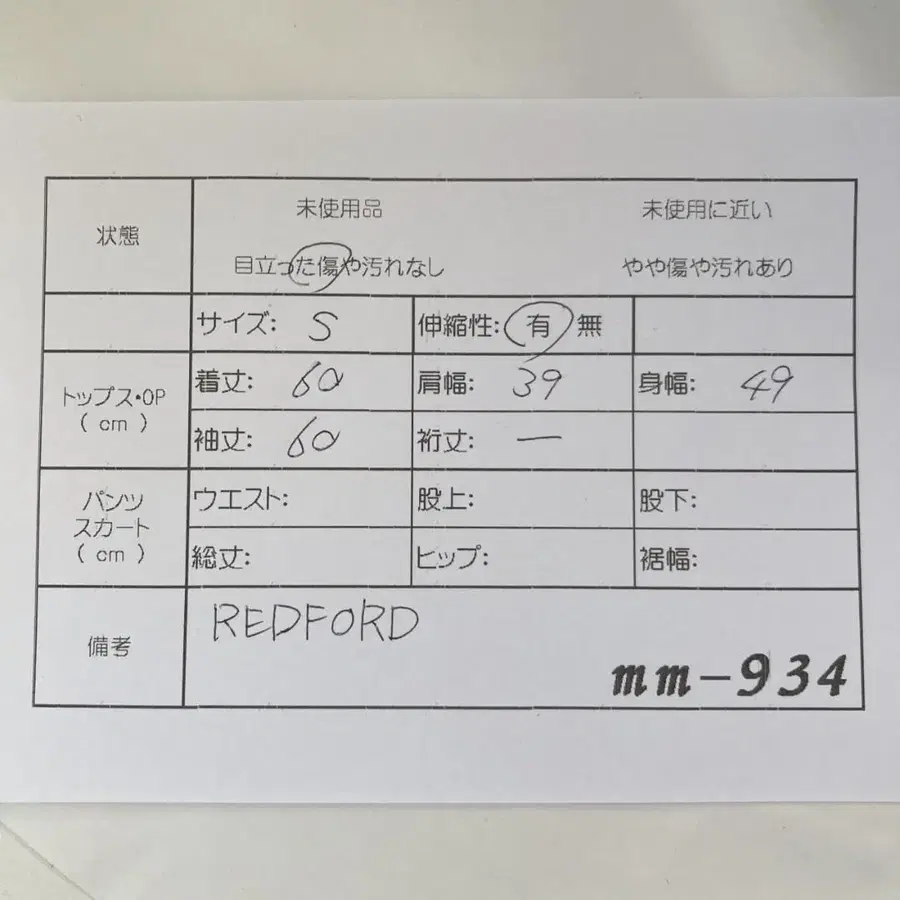 状態
未使用品 未使用に近い
目立った傷や汚れなし やや傷や汚れあり
サイズ: S 伸縮性: 有 無
トップス・OP
( cm )
着丈: 60 肩幅: 39 身幅: 49
袖丈: 60 裄丈: ー
パンツ
スカート
( cm )
ウエスト: 股上: 股下:
総丈: ヒップ: 裾幅:
備考
REDFORD
mm-934